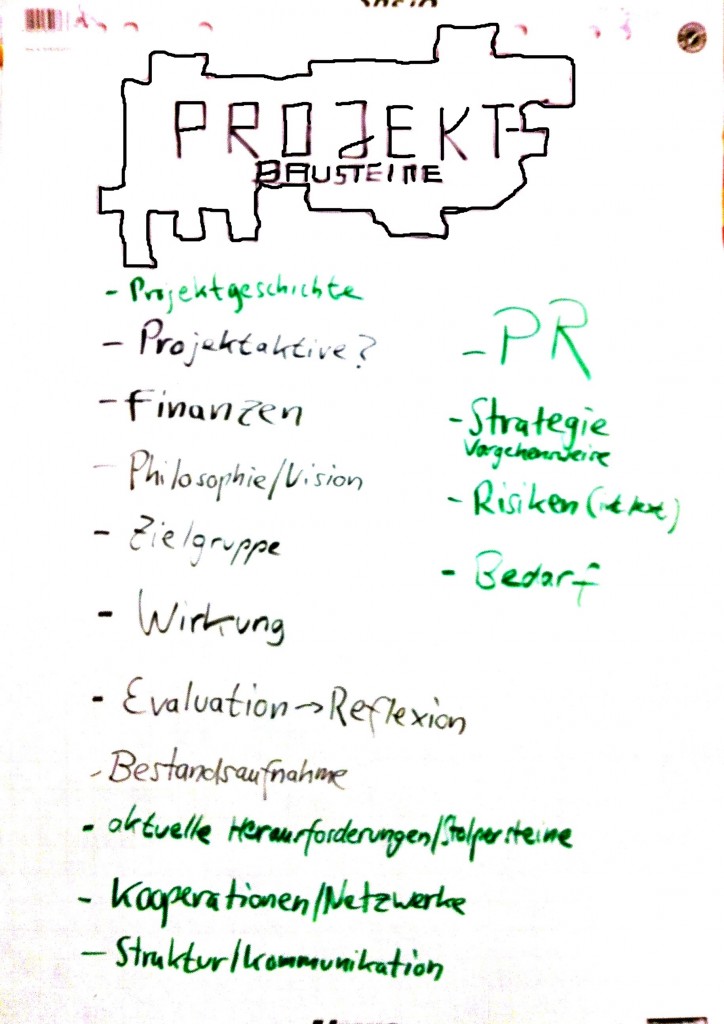 PROJEKT-
BAUSTEINE
- Projektgeschichte
- Projektaktive?
- Finanzen
- Philosophie/Vision
- Zielgruppe
- Wirkung
- Evaluation → Reflexion
- Bestandsaufnahme
- aktuelle Herausforderungen/Stolpersteine
- Kooperationen/Netzwerke
- Struktur/Kommunikation
- PR
- Strategie
Vorgehensweise
- Risiken (int./ext.)
- Bedarf